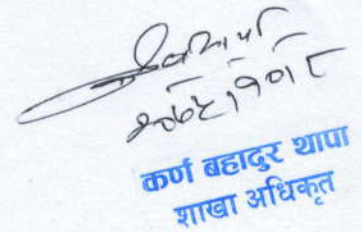 २०७५।१०।८
कर्ण बहादुर थापा
शाखा अधिकृत